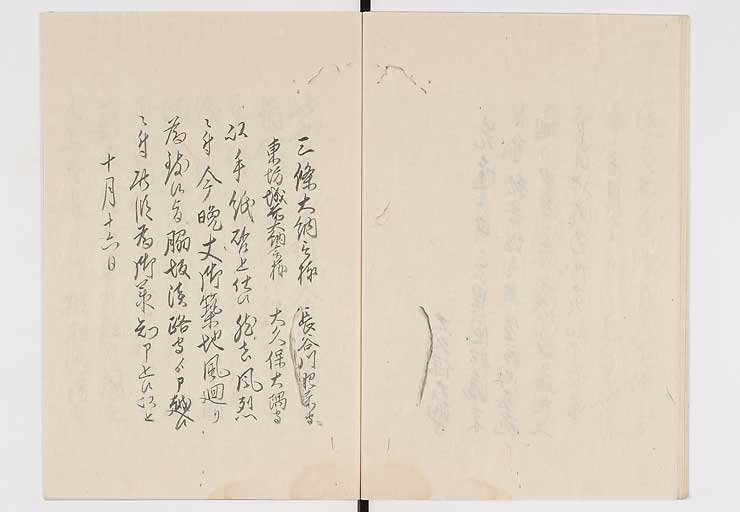 三條大納言様 長谷川肥前守
東坊城前大納言様 大久保大隅守
以手紙啓上仕候然者風烈
ニ付今晩丈御築地風廻り
為致候旨脇坂淡路守ゟ申越候
ニ付此段為御承知申上候以上
十月十六日